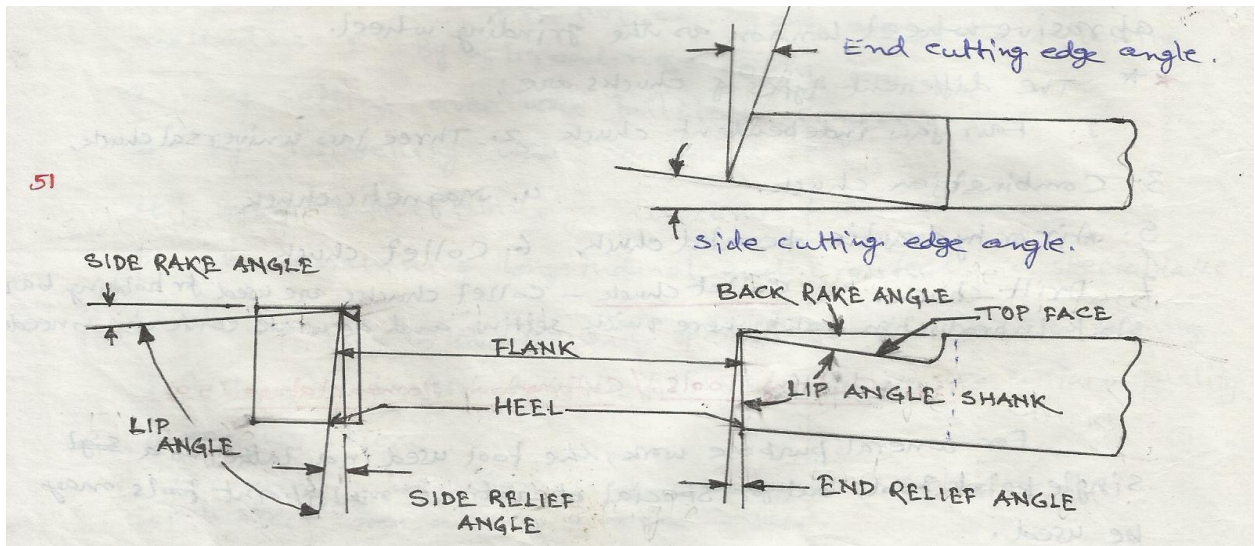 End cutting edge angle.
51
side cutting edge angle.
SIDE RAKE ANGLE
BACK RAKE ANGLE
TOP FACE
FLANK
LIP ANGLE SHANK
HEEL
LIP
ANGLE
SIDE RELIEF
ANGLE
END RELIEF ANGLE